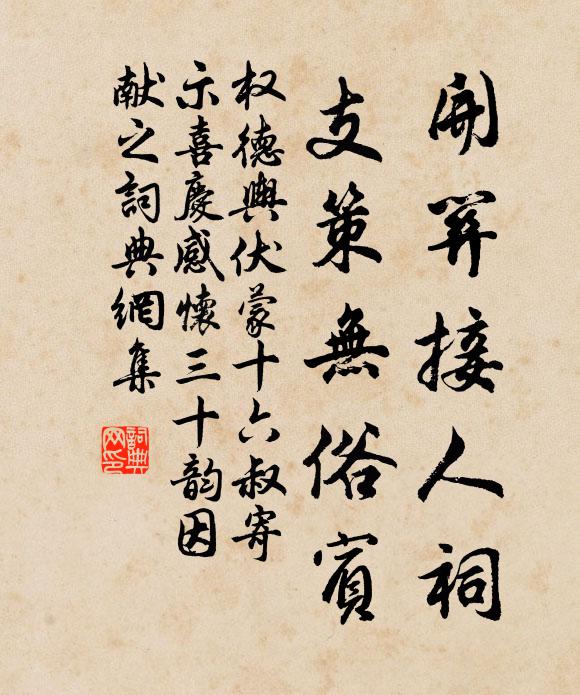 開笄接人祠
支策無俗賓
权德輿伏蒙十六叔寄
示喜慶感懷三十韵因
献之詞典網集
詞典网印